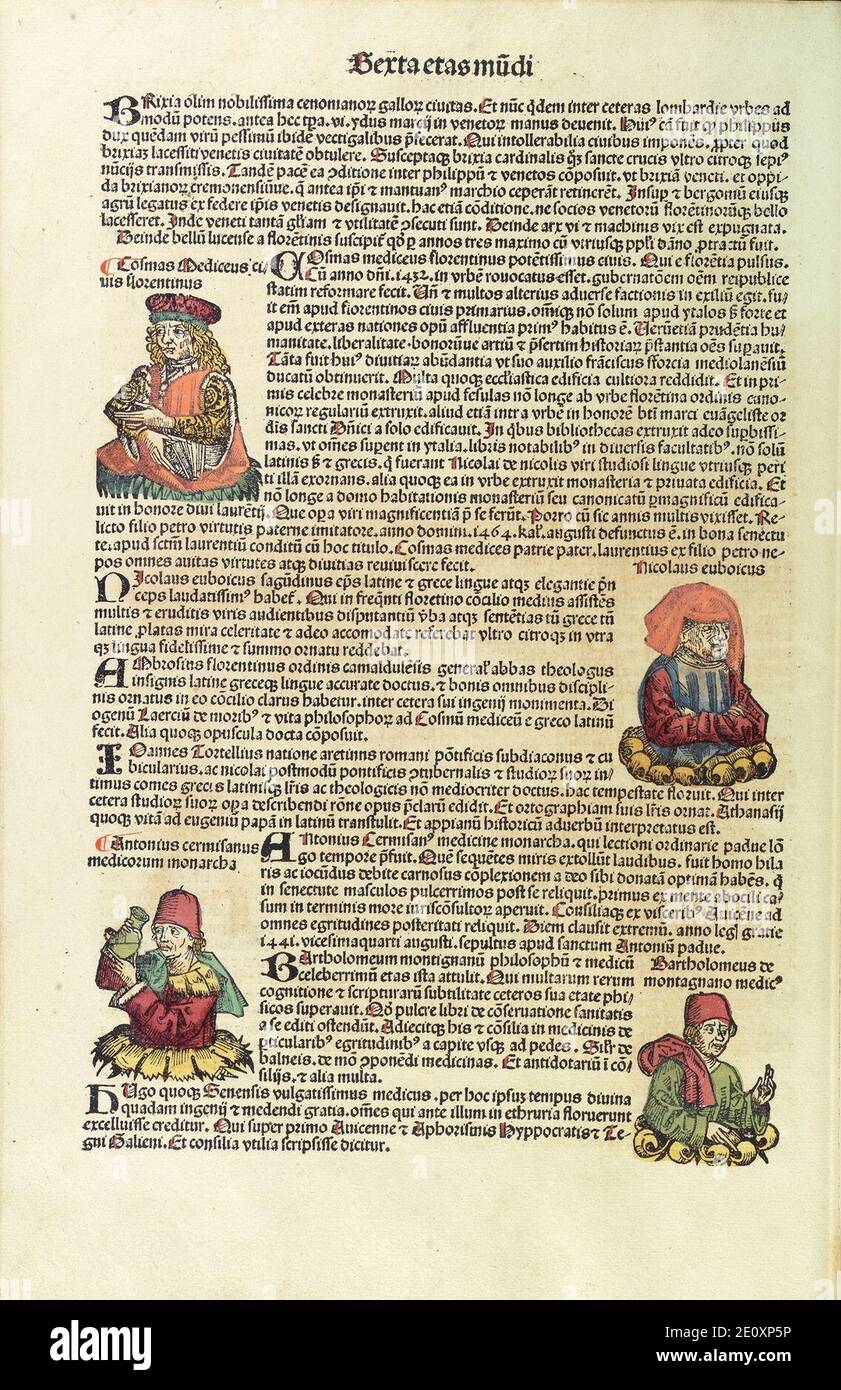 Sexta etas mūdi
BRixia olim nobilissima cenomanoꝝ galloꝝ ciuitas. Et nūc qdem inter ceteras lombardie vrbes ad
modū potens. antea hec tpa. vi. ydus marcij in venetoꝝ manus deuenit. Huiꝰ cā fuit ꝙ philippus
dux quēdam virū pessimū ibidē vectigalibus pfecerat. Qui intollerabilia ciuibus imponēs. ꝓpter quod
brixiāi lacessiti venetis ciuitatē obtulere. Susceptaqꝫ brixia cardinalis qꝫ sancte crucis vltro citroqꝫ sepiꝰ
nūcijs transmissis. Tandē pacē ea ꝯditione inter philippū ⁊ venetos cōposuit. vt brixiā veneti. et oppi-
da brixianoꝝ cremonensiūue. ꝙ antea ipi ⁊ mantuanꝰ marchio ceperāt retinerēt. Insup ⁊ bergomū eiusqꝫ
agrū legatus ex federe ipis venetis designauit. hac etiā cōditione. ne socios venetorū florētinorūqꝫ bello
lacesseret. Inde veneti tantā gliam ⁊ vtilitatē ꝯsecuti sunt. Deinde arx vi ⁊ machinis vix est expugnata.
Deinde bellū lucense a florētinis suscipit qd p annos tres maximo cū vtriusqꝫ ppli dāno ꝓtractū fuit.
Cosmas Mediceus ci-
uis florentinus
COsmas mediceus florentinus potētissimus ciuis. Qui e florētia pulsus.
Cū anno dni. 1432. in vrbem reuocatus esset. gubernatōem oēm reipublice
statim reformare fecit. Un ⁊ multos alterius aduerse factionis in exiliū egit. fu-
it em apud florentinos ciuis primarius. omīqꝫ nō solum apud ytalos ß forte et
apud exteras nationes opū affluentia primꝰ habitus ē. Uerūetiā prudētia hu-
manitate. liberalitate. bonorūue artiū ⁊ psertim historiaꝝ pstantia oēs supauit.
Tāta fuit huiꝰ diuitiaꝝ abūdantia vt suo auxilio frāciscus sforcia mediolanēsiū
ducatū obtinuerit. Multa quoqꝫ ecclāstica edificia cultiora reddidit. Et in pri-
mis celebre monasteriū apud fesulas nō longe ab vrbe florētina ordinis cano-
nicoꝝ regulariū extruxit. aliud etiā intra vrbē in honorē bti marci euāgeliste or
dis sancti Dnici a solo edificauit. In qbus bibliothecas extruxit adeo supbissi-
mas. vt omēs supent in ytalia. libris notabilibꝰ in diuersis facultatibꝰ. nō solū
latinis ß ⁊ grecis. ꝗ fuerant Nicolai de nicolis viri studiosi lingue vtriusqꝫ peri
ti illā exornans. alia quoqꝫ ea in vrbe extruxit monasteria ⁊ priuata edificia. Et
nō longe a domo habitationis monasteriū seu canonicatū pmagnificū edifica-
uit in honore diui laurētij. Que opa viri magnificentiā p se ferūt. Porro cū sic annis multis vixisset. Re-
licto filio petro virtutis paterne imitatore. anno domini. 1464. kal. augusti defunctus ē. in bona senectu
te. apud sctm laurentiū conditū cū hoc titulo. Cosmas medices patrie pater. laurentius ex filio petro ne-
pos omnes auitas virtutes atqꝫ diuitias reuiuiscere fecit.
Nicolaus euboicus
NIcolaus euboicus sagūdinus eps latine ⁊ grece lingue atqꝫ elegantie prin
ceps laudatissimꝰ habet. Qui in freqnti floretino cōcilio medius assistēs
multis ⁊ eruditis viris audientibus disputantiū vba atqꝫ sentētias tū grece tū
latine ꝓlatas mira celeritate ⁊ adeo accomodate referebat vltro citroqꝫ in vtra
qꝫ lingua fidelissime ⁊ summo ornatu reddebat.
AMbrosius florentinus ordinis camaldulēsis general abbas theologus
insignis latine greceqꝫ lingue accurate doctus. ⁊ bonis omnibus discipli-
nis ornatus in eo cōcilio clarus habetur. inter cetera sui ingenij monimenta. Di
ogenū Laerciū de moribꝰ ⁊ vita philosophoꝝ ad Cosmū mediceū e greco latinū
fecit. Alia quoqꝫ opuscula docta cōposuit.
IOannes Tortellius natione aretinus romani pōtificis subdiaconus ⁊ cu
bicularius. ac nicolai postmodū pontificis ꝯtubernalis ⁊ studioꝝ suoꝝ in-
timus comes grecis latinisqꝫ lris ac theologicis nō mediocriter doctus. hac tempestate floruit. Qui inter
cetera studioꝝ suoꝝ opa describendi rōne opus pclarū edidit. Et ortographiam suis lris ornat. Athanasij
quoqꝫ vitā ad eugeniū papā in latinū transtulit. Et appianū historicū aduerbū interpretatus est.
Antonius cermisanus
medicorum monarcha
ANtonius Cermisanꝰ medicine monarcha. qui lectioni ordinarie padue lō
go tempore pfuit. Quē sequētes miris extollūt laudibus. fuit homo hila
ris ac iocūdus debite carnosus cōplexionem a deo sibi donatā optimā habēs. ꝗ
in senectute masculos pulcerrimos post se reliquit. primus ex mente
sum in terminis more iurisconsultoꝝ aperuit. Consiliaqꝫ ex visceribꝰ Auicēne ad
omnes egritudines posteritati reliquit. Diem clausit extremū. anno legl gratie
1441. vicesimaquarti augusti. sepultus apud sanctum Antoniū padue.
BArtholomeum montignanū philosophū ⁊ medicū
celeberrimū etas ista attulit. Qui multarum rerum
cognitione ⁊ scripturarū subtilitate ceteros sua etate phi-
sicos superauit. Qd pulcre libri de cōseruatione sanitatis
a se editi ostendūt. Adiecitqꝫ his ⁊ cōsilia in medicinis de
pticularibꝰ egritudinibꝰ a capite vsqꝫ ad pedes. de
balneis. de mō ꝯponēdi medicinas. Et antidotariū i cō-
silijs. ⁊ alia multa.
Bartholomeus de
montagnano medicꝰ
HUgo quoqꝫ Senensis vulgatissimus medicus. per hoc ipsuꝫ tempus diuina
quadam ingenij ⁊ medendi gratia. omēs qui ante illum in ethruria floruerunt
excelluisse creditur. Qui super primo Auicenne ⁊ Aphorismis Hyppocratis ⁊ Te-
gni Galieni. Et consilia vtilia scripsisse dicitur.
alamy
Image ID: 2E0XP5P
www.alamy.com